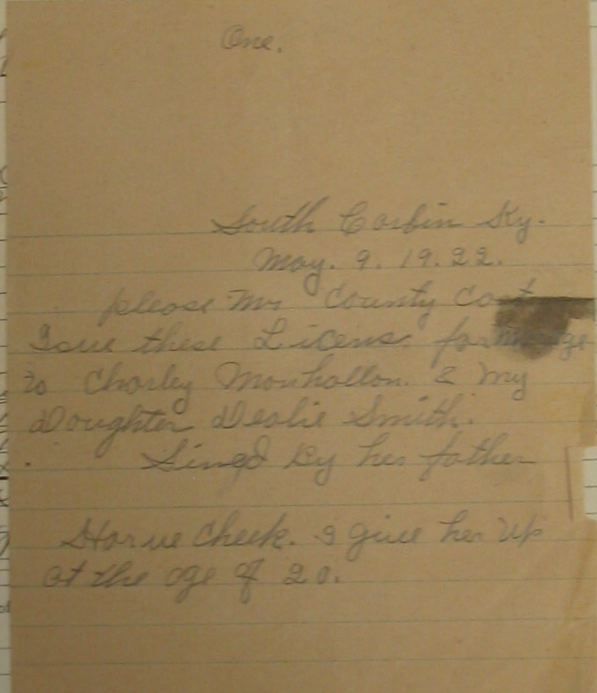 One.
South Corbin Ky.
May. 9. 19.22.
please Mr County Cort
Isue these Licens. for
to Charley Monhollon. & my
Doughter Dealie Smith.
Singd By her father
Harve Cheek. I give her up
at the age of 20.